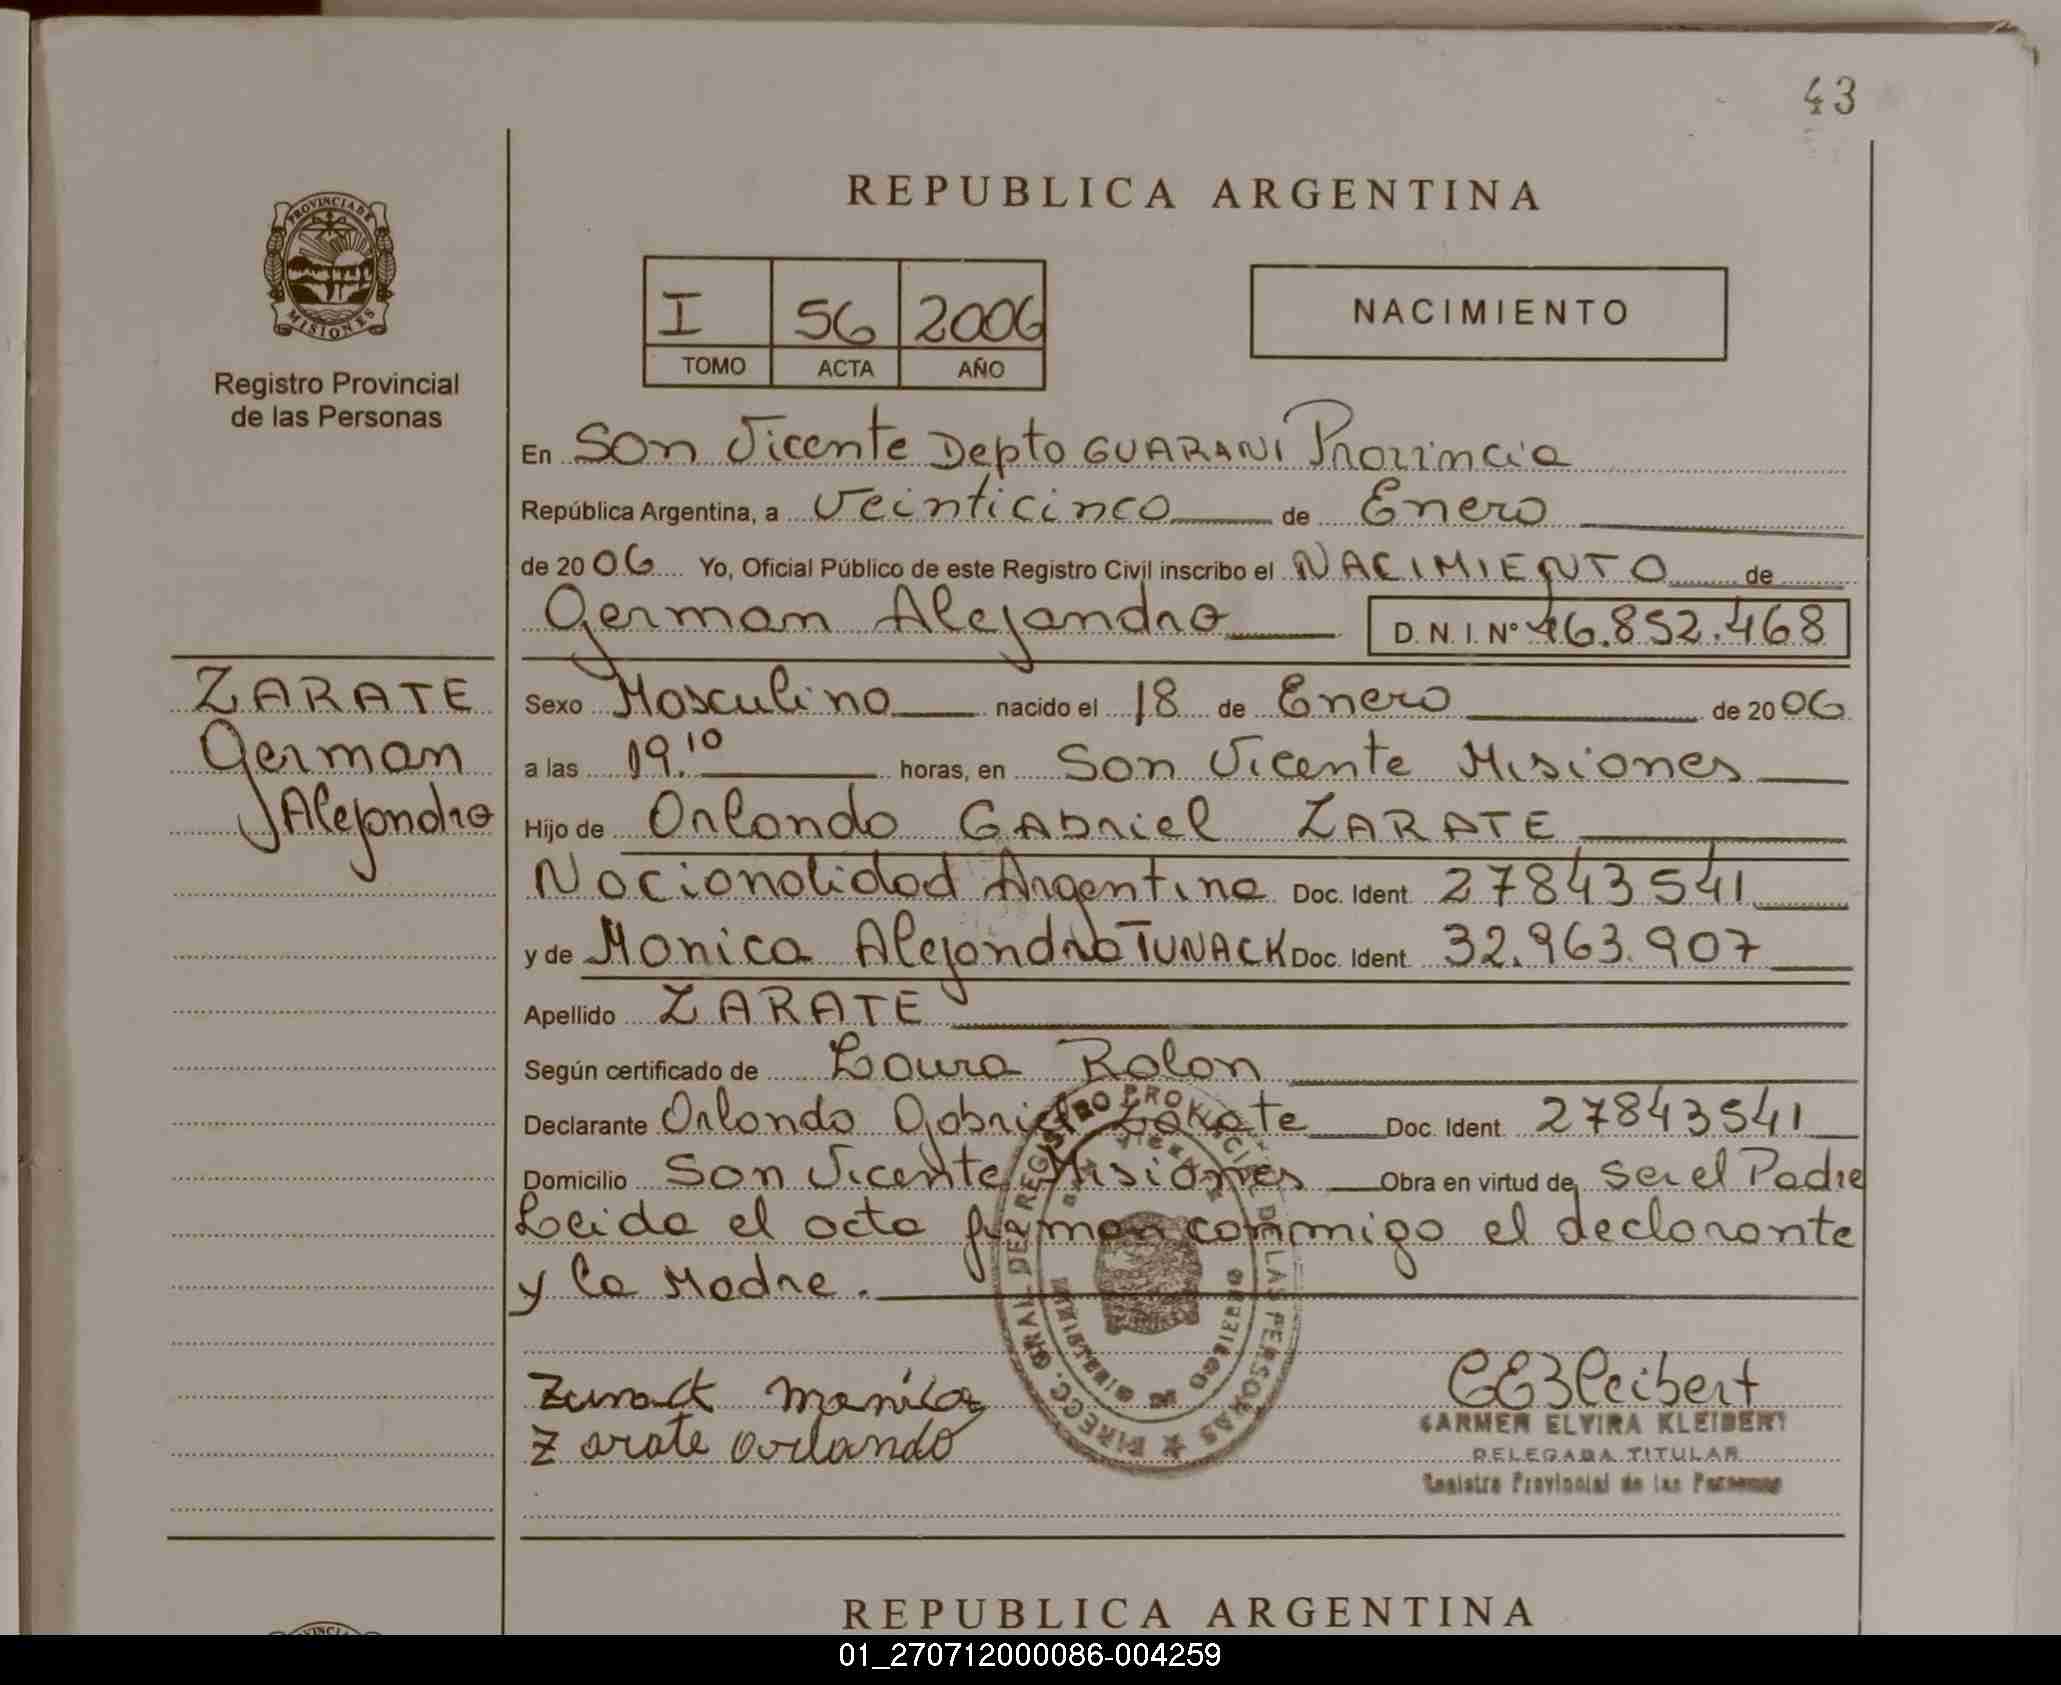 43
PROVINCIA DE
MISIONES
Registro Provincial
de las Personas
REPUBLICA ARGENTINA
I 56 2006
TOMO ACTA AÑO
NACIMIENTO
En San Vicente Depto GUARANI Provincia
República Argentina, a Veinticinco de Enero
de 2006 Yo, Oficial Público de este Registro Civil inscribo el NACIMIENTO de
German Alejandro D. N. I. Nº 46.852.468
ZARATE
German
Alejandro
Sexo Masculino nacido el 18 de Enero de 2006
a las 19.10 horas, en San Vicente Misiones
Hijo de Orlando Gabriel ZARATE
Nacionalidad Argentina Doc. Ident. 27843541
y de Monica Alejandra TUNACK Doc. Ident. 32.963.907
Apellido ZARATE
Según certificado de Laura Rolon
Declarante Orlando Gabriel Zarate Doc. Ident. 27843541
Domicilio San Vicente Misiones Obra en virtud de ser el Padre
Leida el acta firman conmigo el declarante
y la Madre.
DIRECC. GRAL. DEL REGISTRO PROVINCIAL DE LAS PERSONAS
MINISTERIO DE GOBIERNO
monica
Zarate orlando
CEKleibert
CARMEN ELVIRA KLEIBERT
DELEGADA TITULAR
Registro Provincial de las Personas
REPUBLICA ARGENTINA
01_270712000086-004259